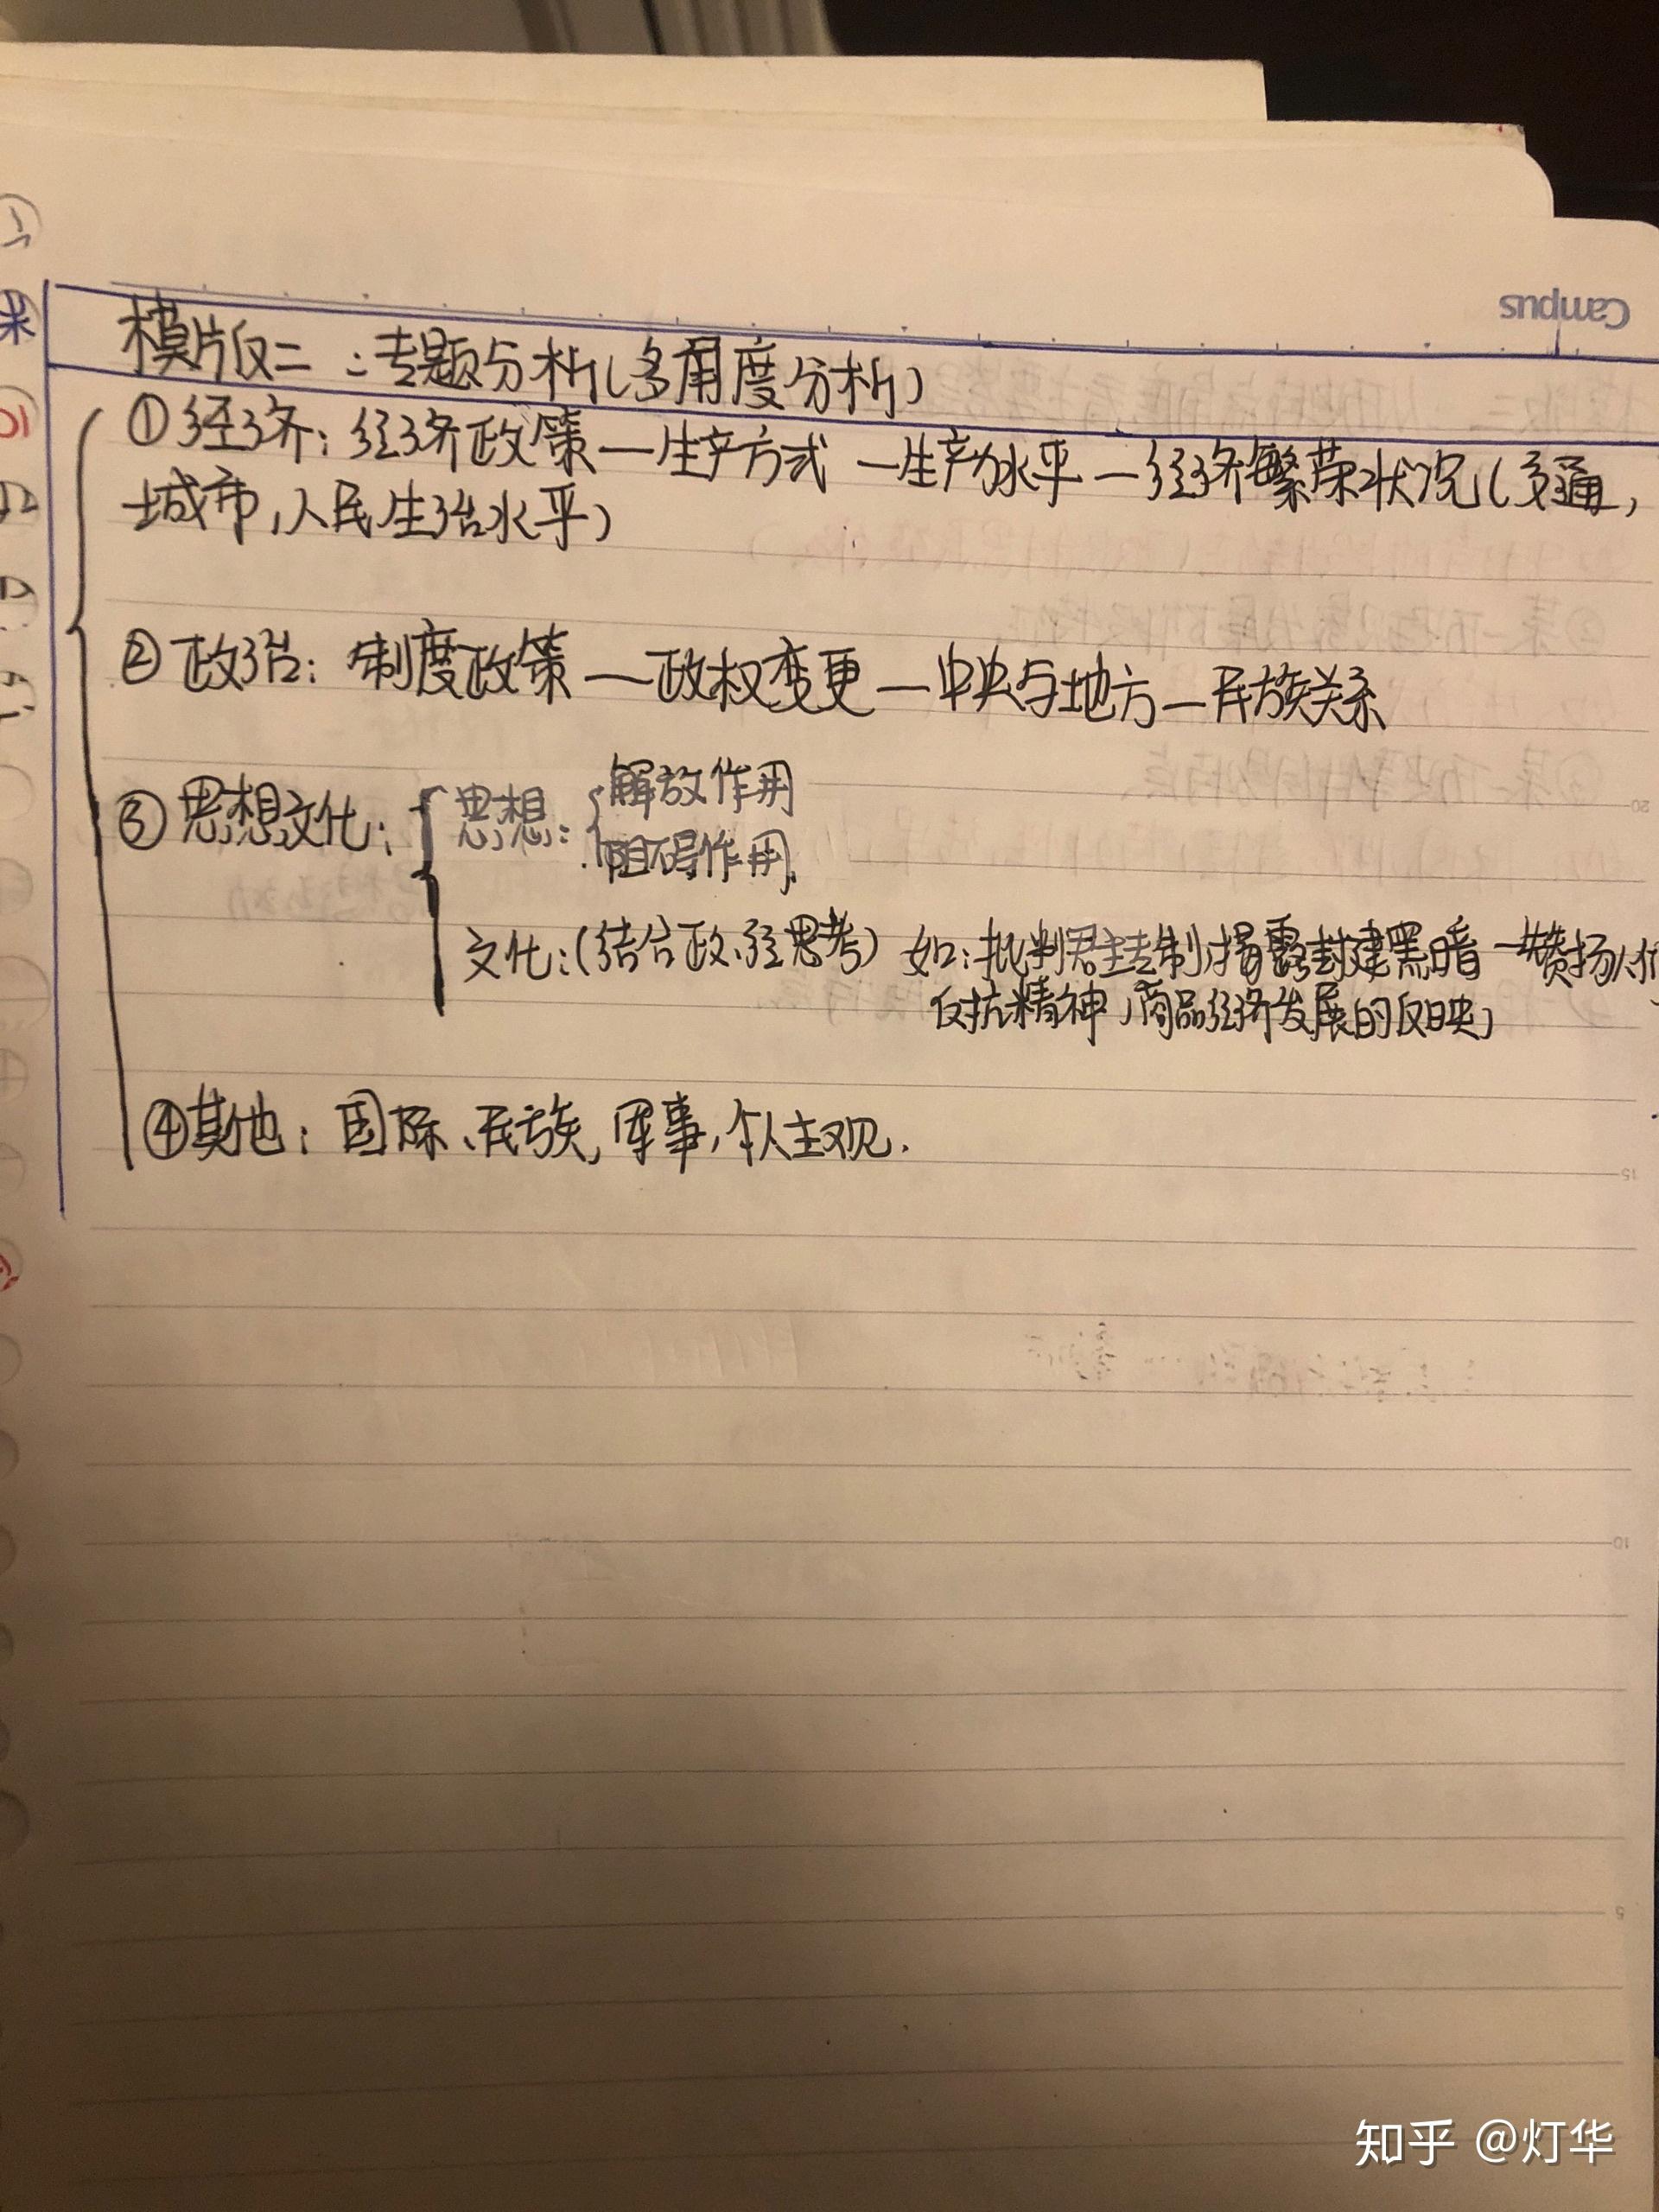 Campus
模版二：专题分析(多角度分析)
①经济：经济政策—生产方式—生产力水平—经济繁荣状况(交通,
城市,人民生活水平)
②政治：制度政策—政权变更—中央与地方—民族关系
③思想文化：{思想：{解放作用
阻碍作用.
文化:(结合政、经思考) 如：批判君主专制,揭露封建黑暗—赞扬人们
反抗精神,商品经济发展的反映,
④其他：国际、民族,军事,个人主观.
20
15
10
5
知乎 @灯华